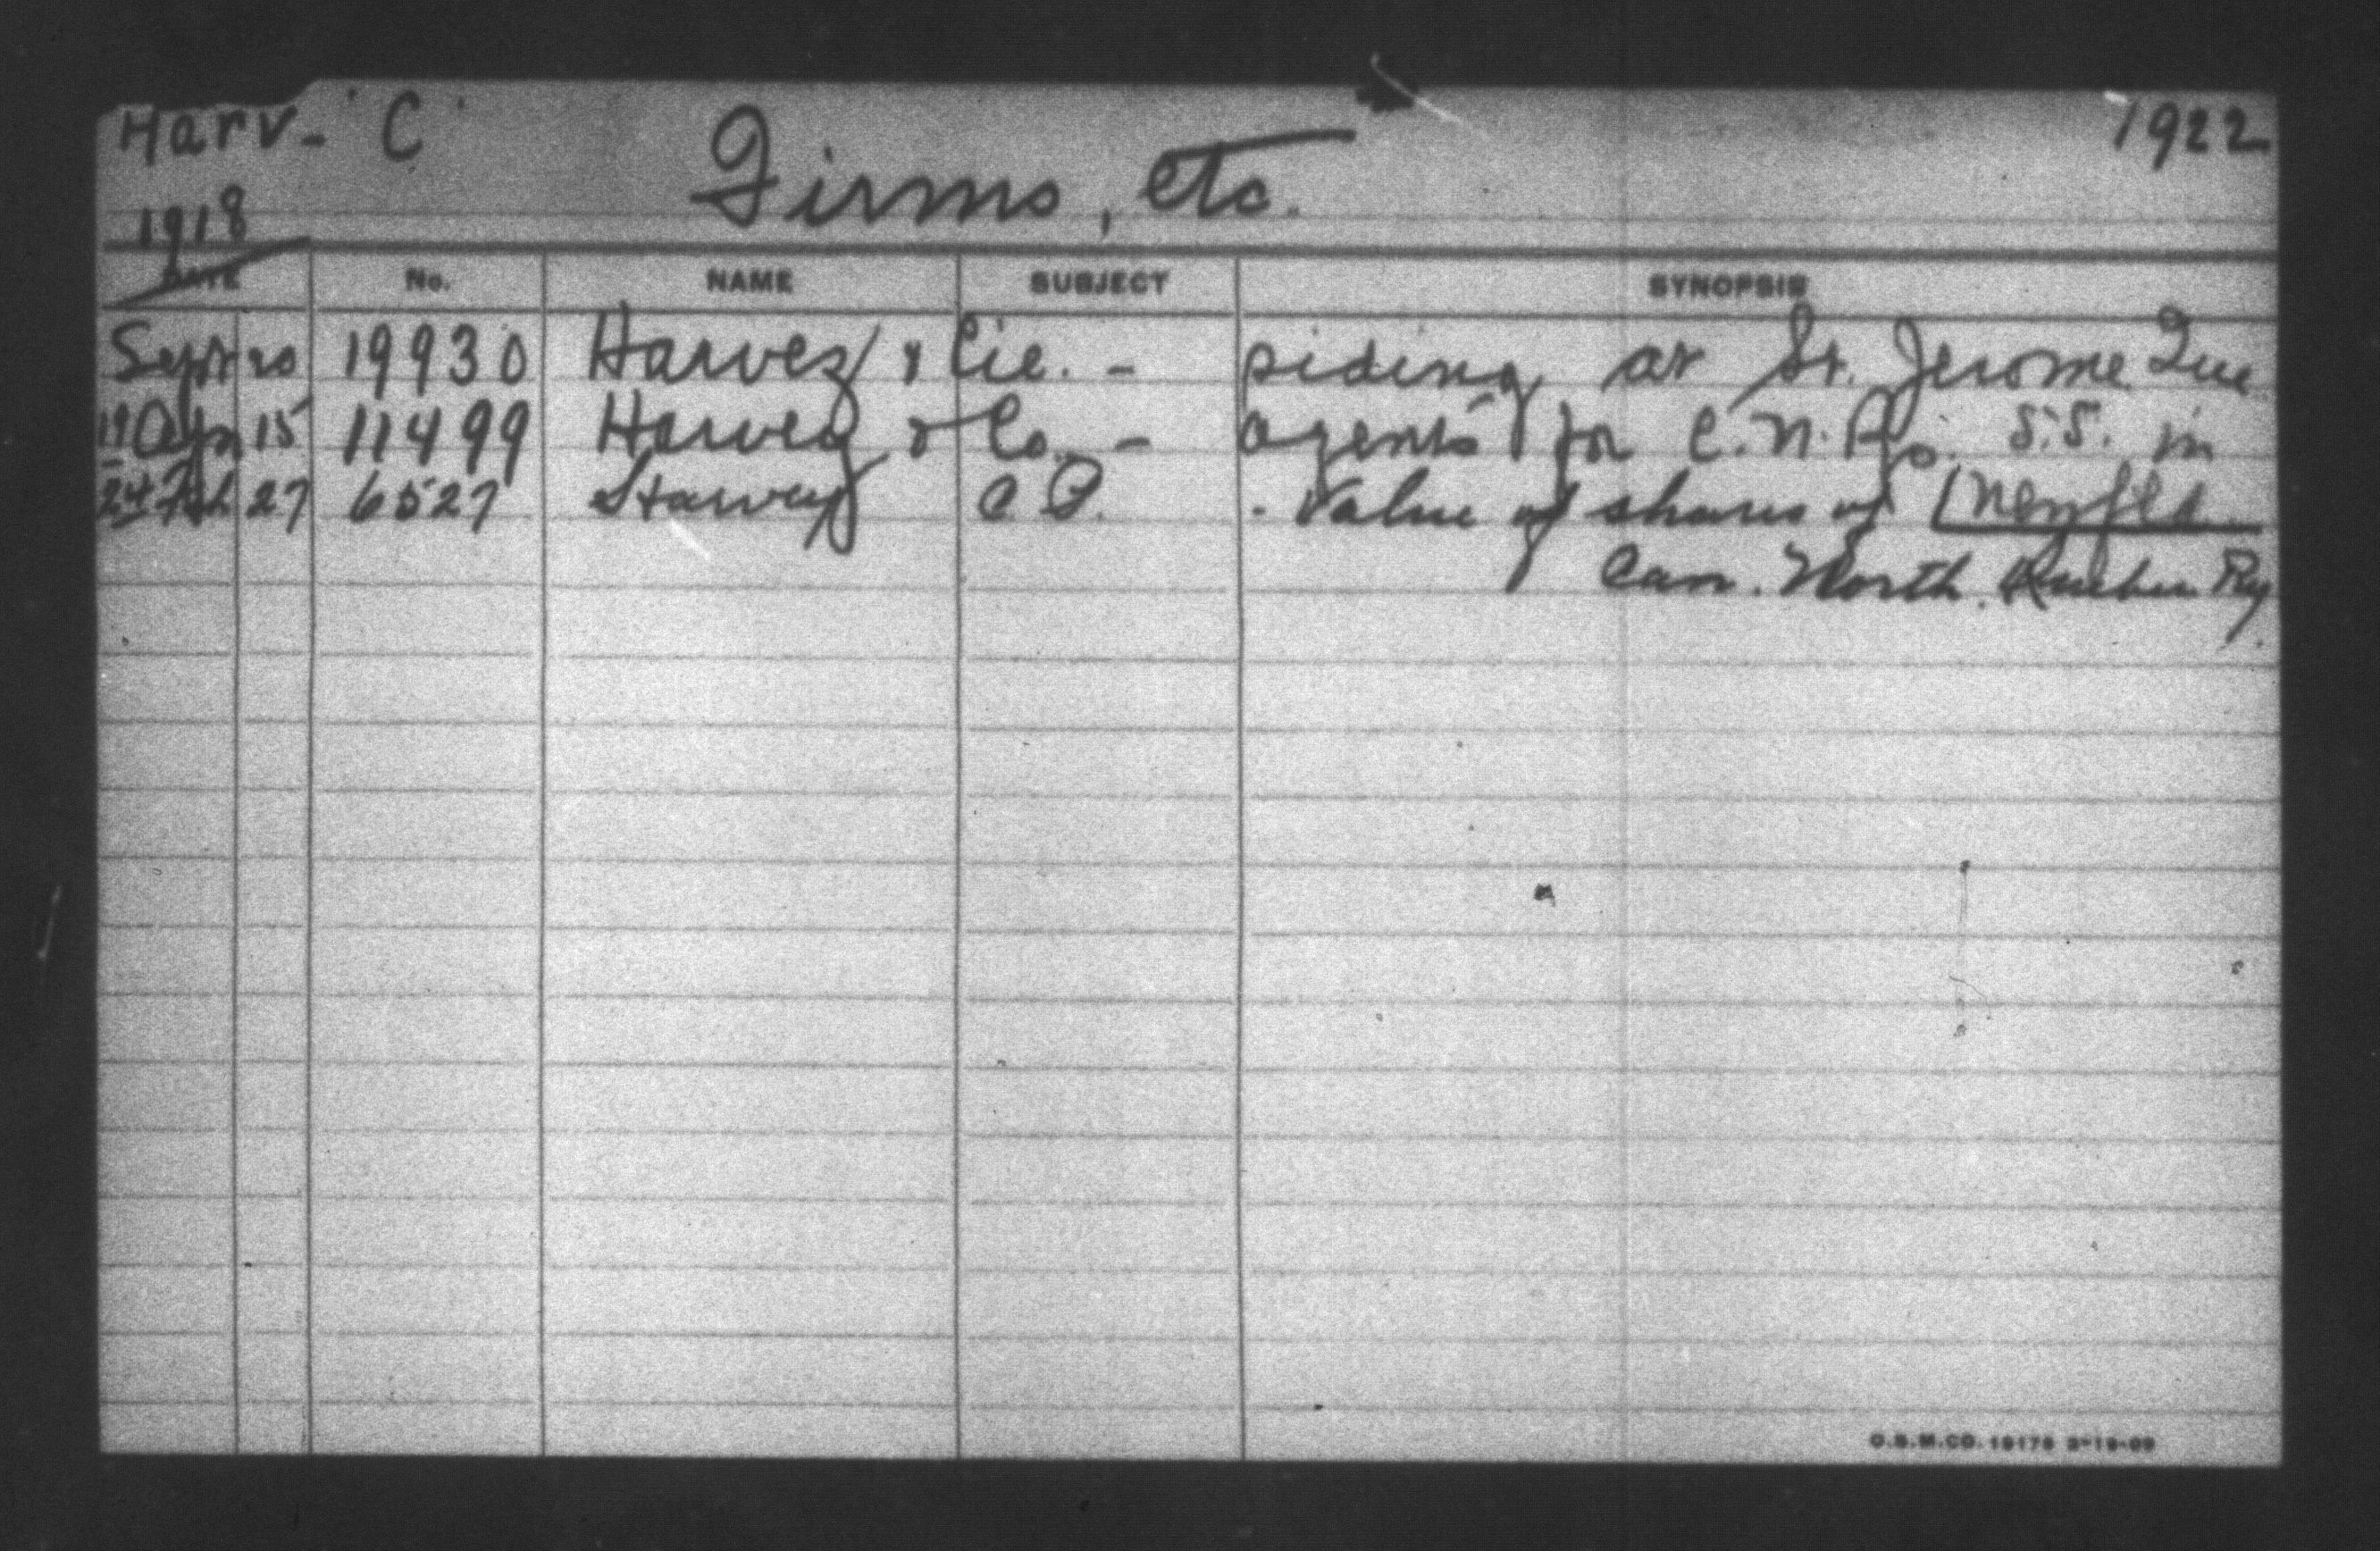 Harv- "C"
Firms, etc.
1922
1918
DATE No. NAME SUBJECT SYNOPSIS
Sept 20 19930 Harvey & Cie. - siding at St. Jerome Que
19 Apr 15 11499 Harvey & Co. - agents for C.N.Rys. S.S. in
Newfld
24 Feb 27 6527 Harvey C. P. - Value of shares of
Can. North. Quebec Ry.
O.S.M.CO. 18178 3-19-09